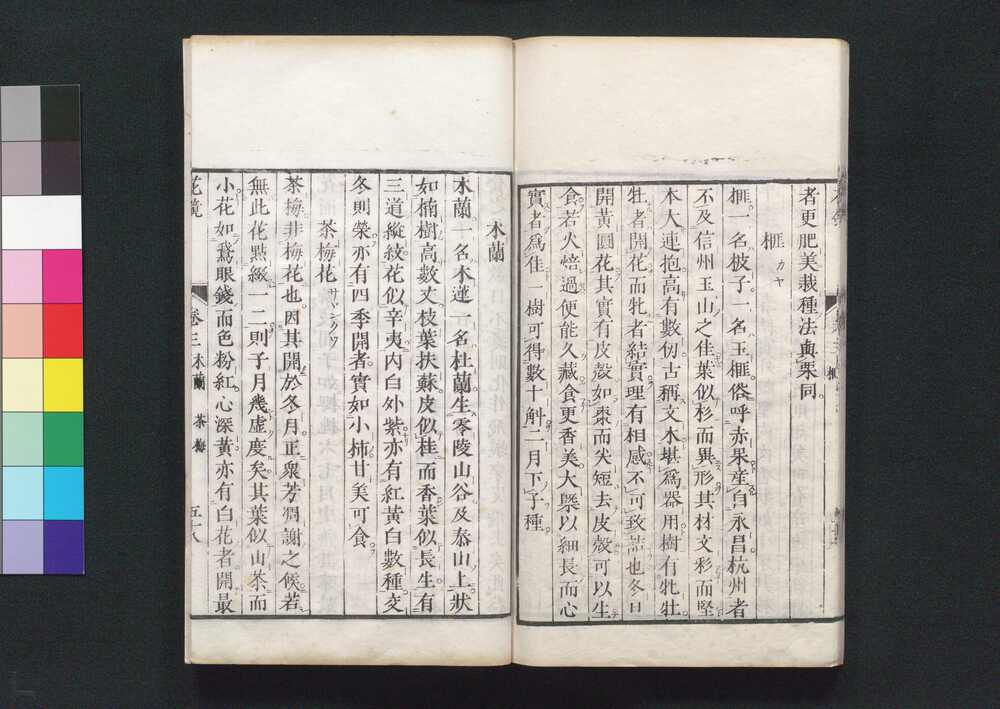 者更肥美栽種法與栗同。
榧 カヤ
榧一名柀子。一名玉榧俗呼赤果産自永昌杭州者
不及信州玉山之佳葉似杉而異形其材文彩而堅
本大連抱高有數仞古稱文木堪爲器用樹有牝牡
牡者開花而牝者結實理有相感不可致詰也冬日
開黃圓花其實有皮殼如棗而尖短去皮殼可以生
食若火焙過便能久藏食更香美大槩以細長而心
實者爲佳一樹可得數十斛二月下子種
木蘭
木蘭一名木蓮一名杜蘭生零陵山谷及泰山上狀
如楠樹高數丈枝葉扶蘇皮似桂而香葉似長生有
三道縱紋花似辛夷内白外紫亦有紅黃白數種交
冬則榮亦有四季開者實如小柿甘美可食
茶梅花 サヾンクワ
茶梅非梅花也因其開於冬月正衆芳凋謝之候若
無此花點綴一二則子月幾虛度矣其葉似山茶而
小花如鵞眼錢而色粉紅心深黃亦有白花者開最
花鏡 卷三 木蘭 茶梅 五十八